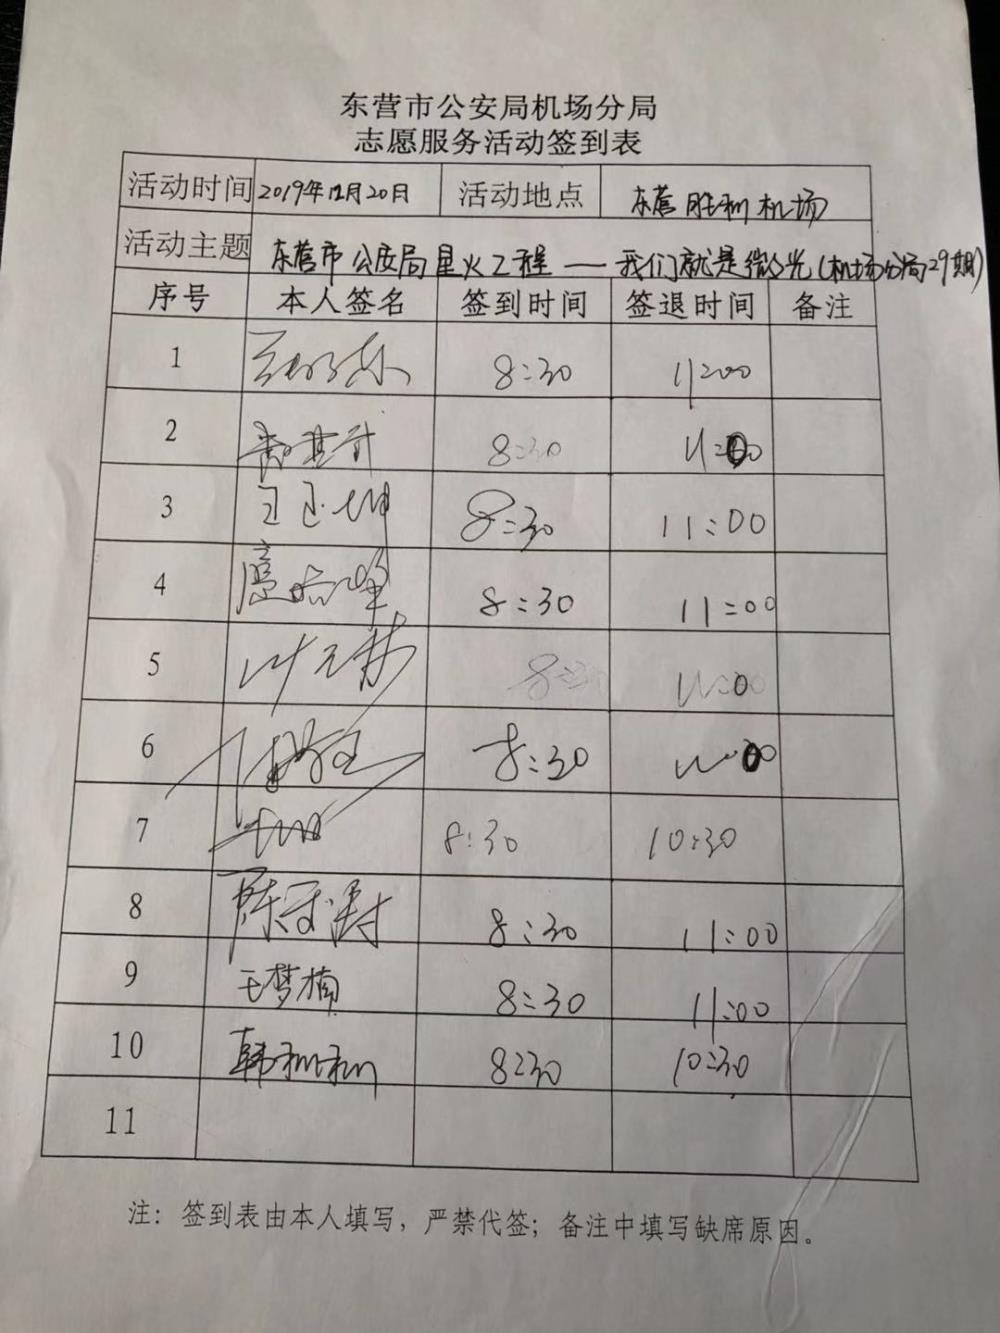 东营市公安局机场分局
志愿服务活动签到表
活动时间 2019年12月20日 活动地点 东营胜利机场
活动主题 东营市公安局星火工程——我们就是微光(机场分局29期)
序号 本人签名 签到时间 签退时间 备注
1 8:30 11:00
2 8:30 11:00
3 王玉坤 8:30 11:00
4 8:30 11:00
5 8:30 11:00
6 8:30 11:00
7 8:30 10:30
8 8:30 11:00
9 王梦楠 8:30 11:00
10 韩利利 8:30 10:30
11
注：签到表由本人填写，严禁代签；备注中填写缺席原因。